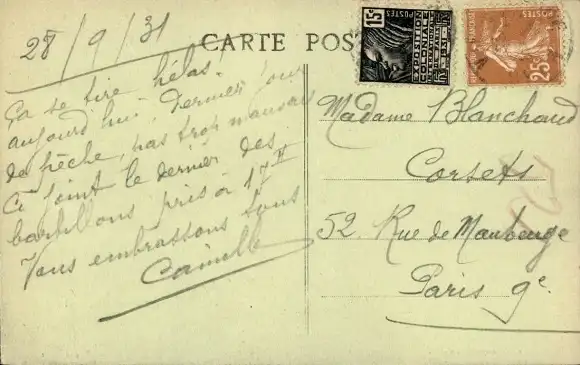 28/9/31
CARTE POS
Ça se tire hélas.
aujourd'hui, dernier jour
de pêche, pas trop mauvais
Ci joint le dernier des
barbillons pris à 17 H
Vous embrassons tous
Camille
15c
POSTES
EXPOSITION
COLONIALE
INTERNATIONALE
PARIS 1931
25c
POSTES
Madame Blanchaud
Corsets
52. Rue de Maubeuge
Paris 9e.